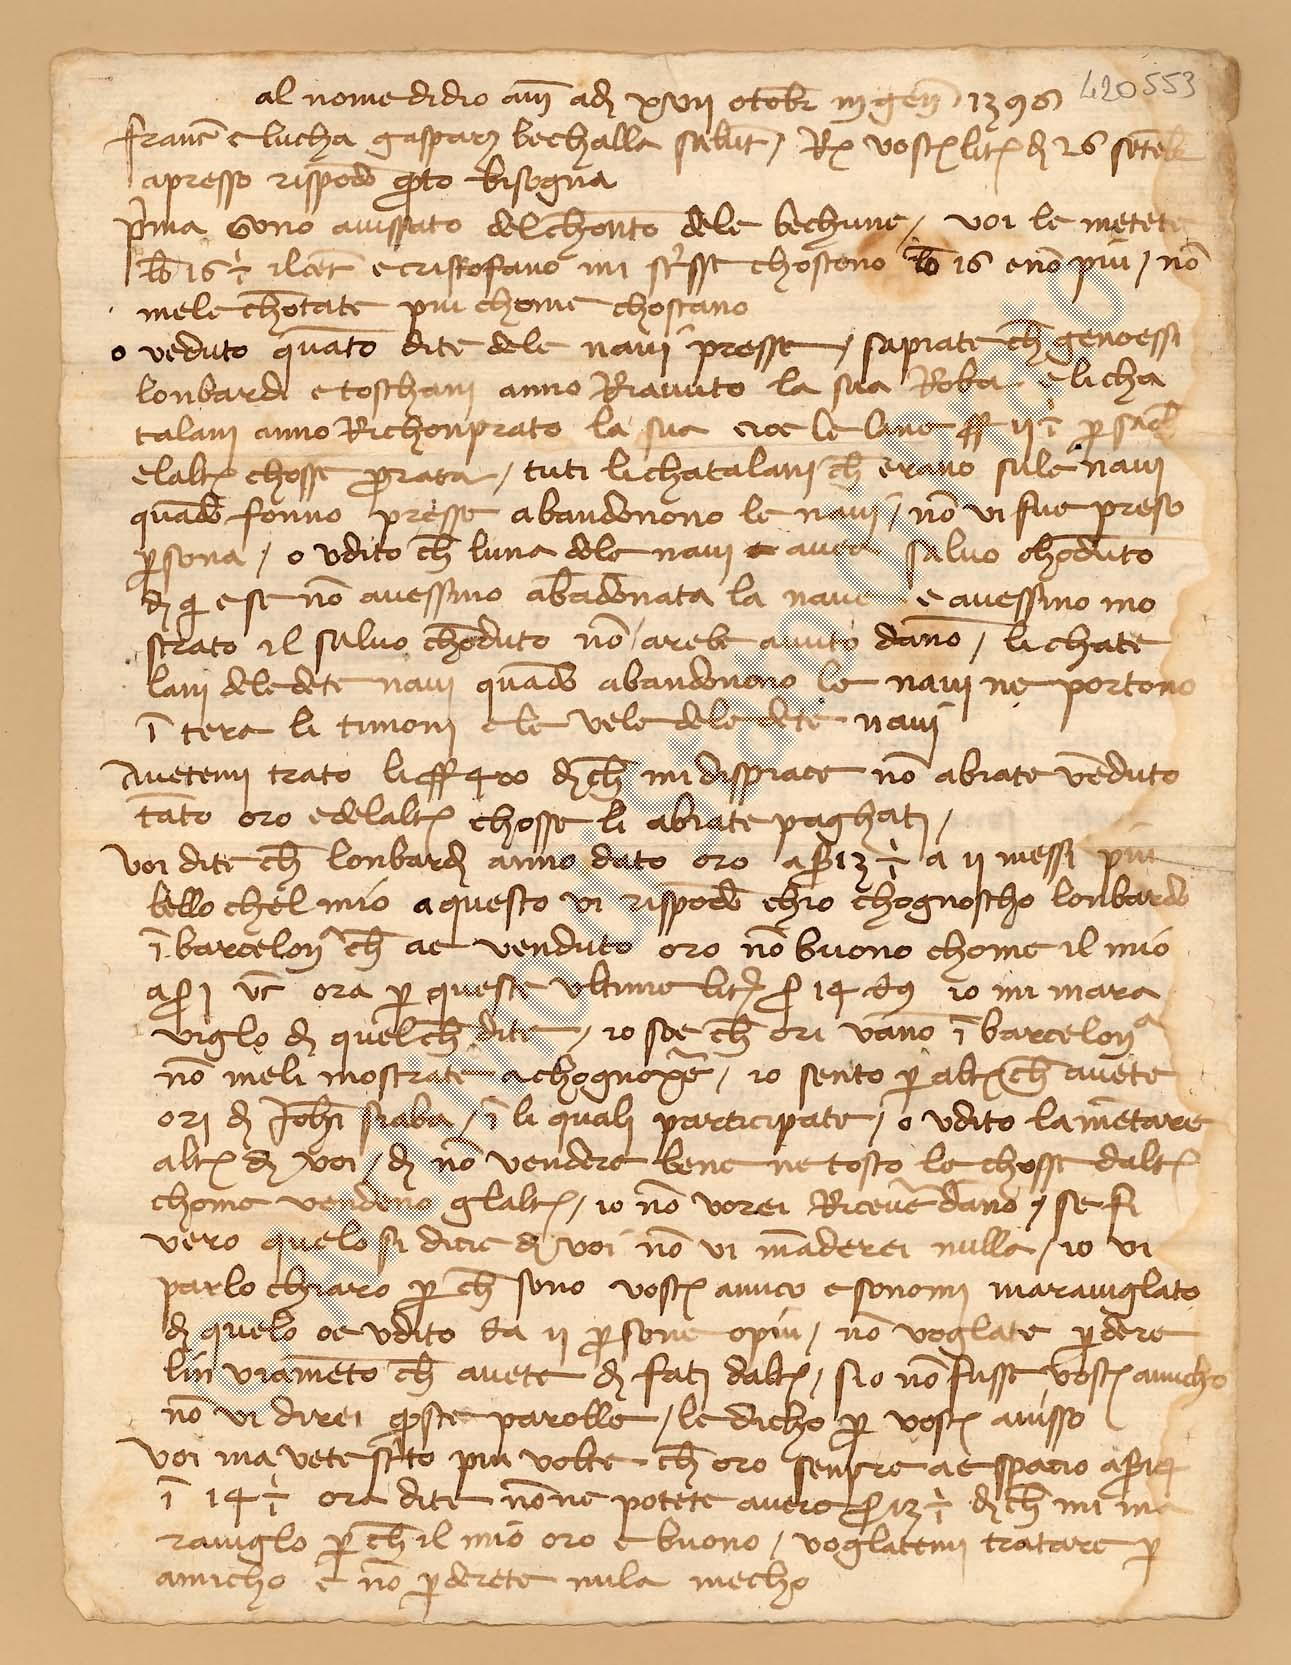 al nome di dio am̄ adi xvii otobr̄ in gen̄ 1396
420553
franc̄ e lucha gasparj bechalla salut / Rx vostr litr di 26 setēbr
apresso rispōdo qto bisogna
p'ima sono auissato del chōnto dele bechune / voi le metete
lb 16 ½ il cēt e cristofano mi sc'sse chosteno lb 16 e nō piu / nō
mele chōtate piu chome chostano
o veduto quāto dite dele naui presse / sapiate ch̄ genoessi
lonbardi e toschani anno Riauuto la sua Roba e li cha
talani anno Richonprato la sua cioe le lane ff ii ½ p sacħ
e laltr chosse prorata / tuti li chatalani ch̄ erano sule naui
quādo fonno presse abandonono le naui / nō vi fue preso
psona / o vdito ch̄ luna dele naui auea saluo chōduto
di q e se nō auessino abādonata la naue e auessino mo
strato il saluo chōduto nō arebe auuto dano / li chate
lani dele dete naui quādo abandonono le naui ne portono
ī tera li timoni e le vele dele dete naui
Auetemi trato li ff 400 di ch̄ mi dispiace nō abiate vēduto
tāto oro e delaltr chosse li abiate paghati /
voi dite ch̄ lonbardi anno dato oro a ß 13 ½ a ii messi piu
bello chel mio a questo vi rispōdo chio chognoscho lonbardo
ī barcelona ch̄ ae venduto oro nō buono chome il mio
a ß j vc ora p queste vltime litr ß 14 d 9 io mi mara
viglo di quel ch̄ dite / io soe ch̄ ori vano ī barcelona
nō meli mostrate a chognoxē / io sento p altr ch̄ auete
ori di Johī siaba / ī li quali participate / o vdito lamētare
altr di voi / di nō vendere bene ne tosto le chosse daltr
chome vendeno glaltr / io nō vorei Riceuē dano / se fi
vero quelo si dicie di voi nō vi māderei nulla / io vi
parlo chiaro p ch̄ sono vostr amico e sonomi marauiglato
di quelo oe vdito da ii psone o piu / nō voglate pdere
lin viamēto ch̄ auete di fati daltr / sio nō fusse vostr amicho
nō vi direi qste parolle / le dicho p vostr auisso
voi ma vete sc'to piu volte ch̄ oro senpre ae spacio a ß 14
ī 14 ½ ora dite nōne potete auere ß 13 ½ di ch̄ mi ma
rauiglo p ch̄ il mio oro e buono / voglatemi tratare p
amicho e nō pderete nula mecho